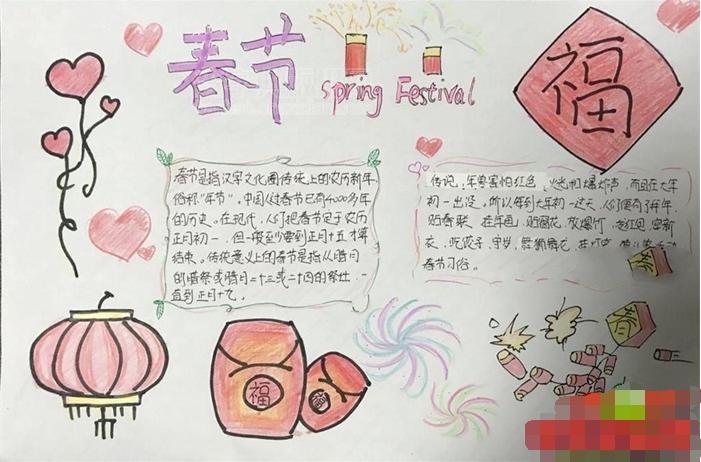 春节
Spring Festival
福
春节是指汉字文化圈传统上的农历新年
俗称"年节"，中国人过春节已有4000多年
的历史。在现代，人们把春节定于农历
正月初一，但一般至少要到正月十五才算
结束。传统意义上的春节是指从腊月
的腊祭或腊月二十三或二十四的祭灶，一
直到正月十九。
传说，年兽害怕红色、火光和爆炸声，而且在大年
初一出没，所以每到大年初一这天，人们便有了拜年、
贴春联、挂年画、贴窗花、放爆竹、发红包、穿新
衣、吃饺子、守岁、舞狮舞龙、挂灯
春节习俗。
福
春